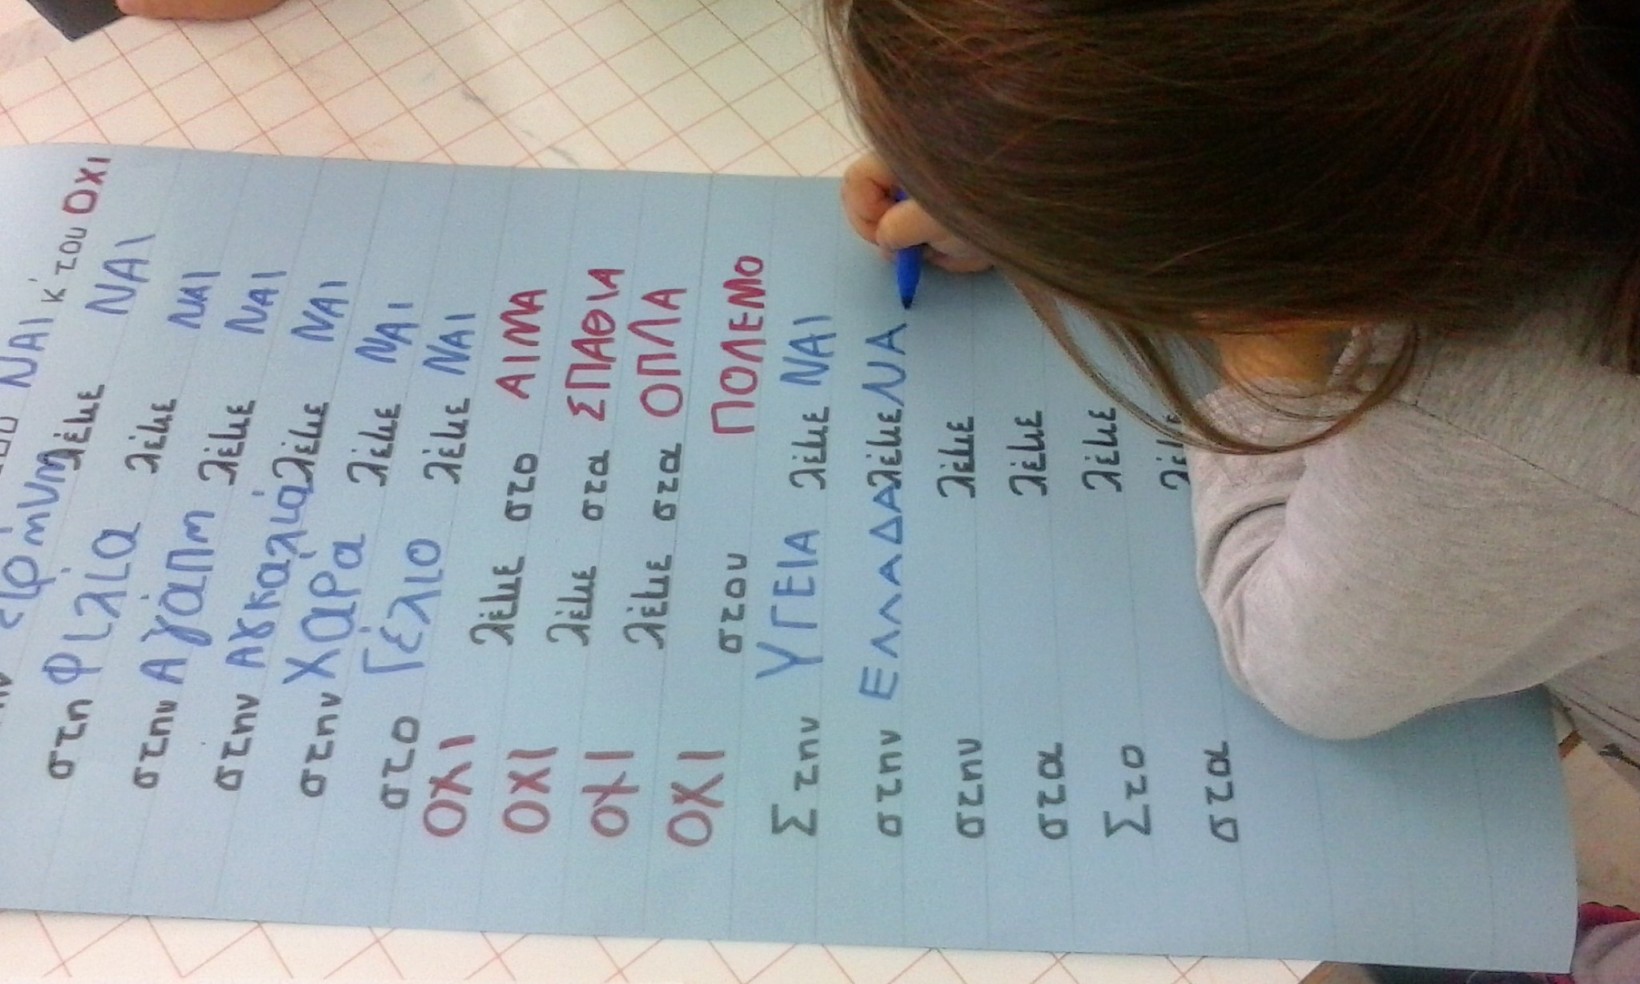 ΝΑΙ κ' του ΟΧΙ
ειρήνη λέμε ΝΑΙ
στη Φιλία λέμε ΝΑΙ
στην Αγάπη λέμε ΝΑΙ
στην Αγκαλιά λέμε ΝΑΙ
στην Χαρα λέμε ΝΑΙ
στο Γέλιο λέμε ΝΑΙ
ΟΧΙ λέμε στο ΑΙΜΑ
ΟΧΙ λέμε στα ΣΠΑΘΙΑ
ΟΧΙ λέμε στα ΟΠΛΑ
ΟΧΙ στου ΠΟΛΕΜΟ
Στην ΥΓΕΙΑ λέμε ΝΑΙ
στην ΕΛΛΑΔΑ λέμε ΝΑ
στην λέμε
στα λέμε
Στο λέμε
στα λέμε